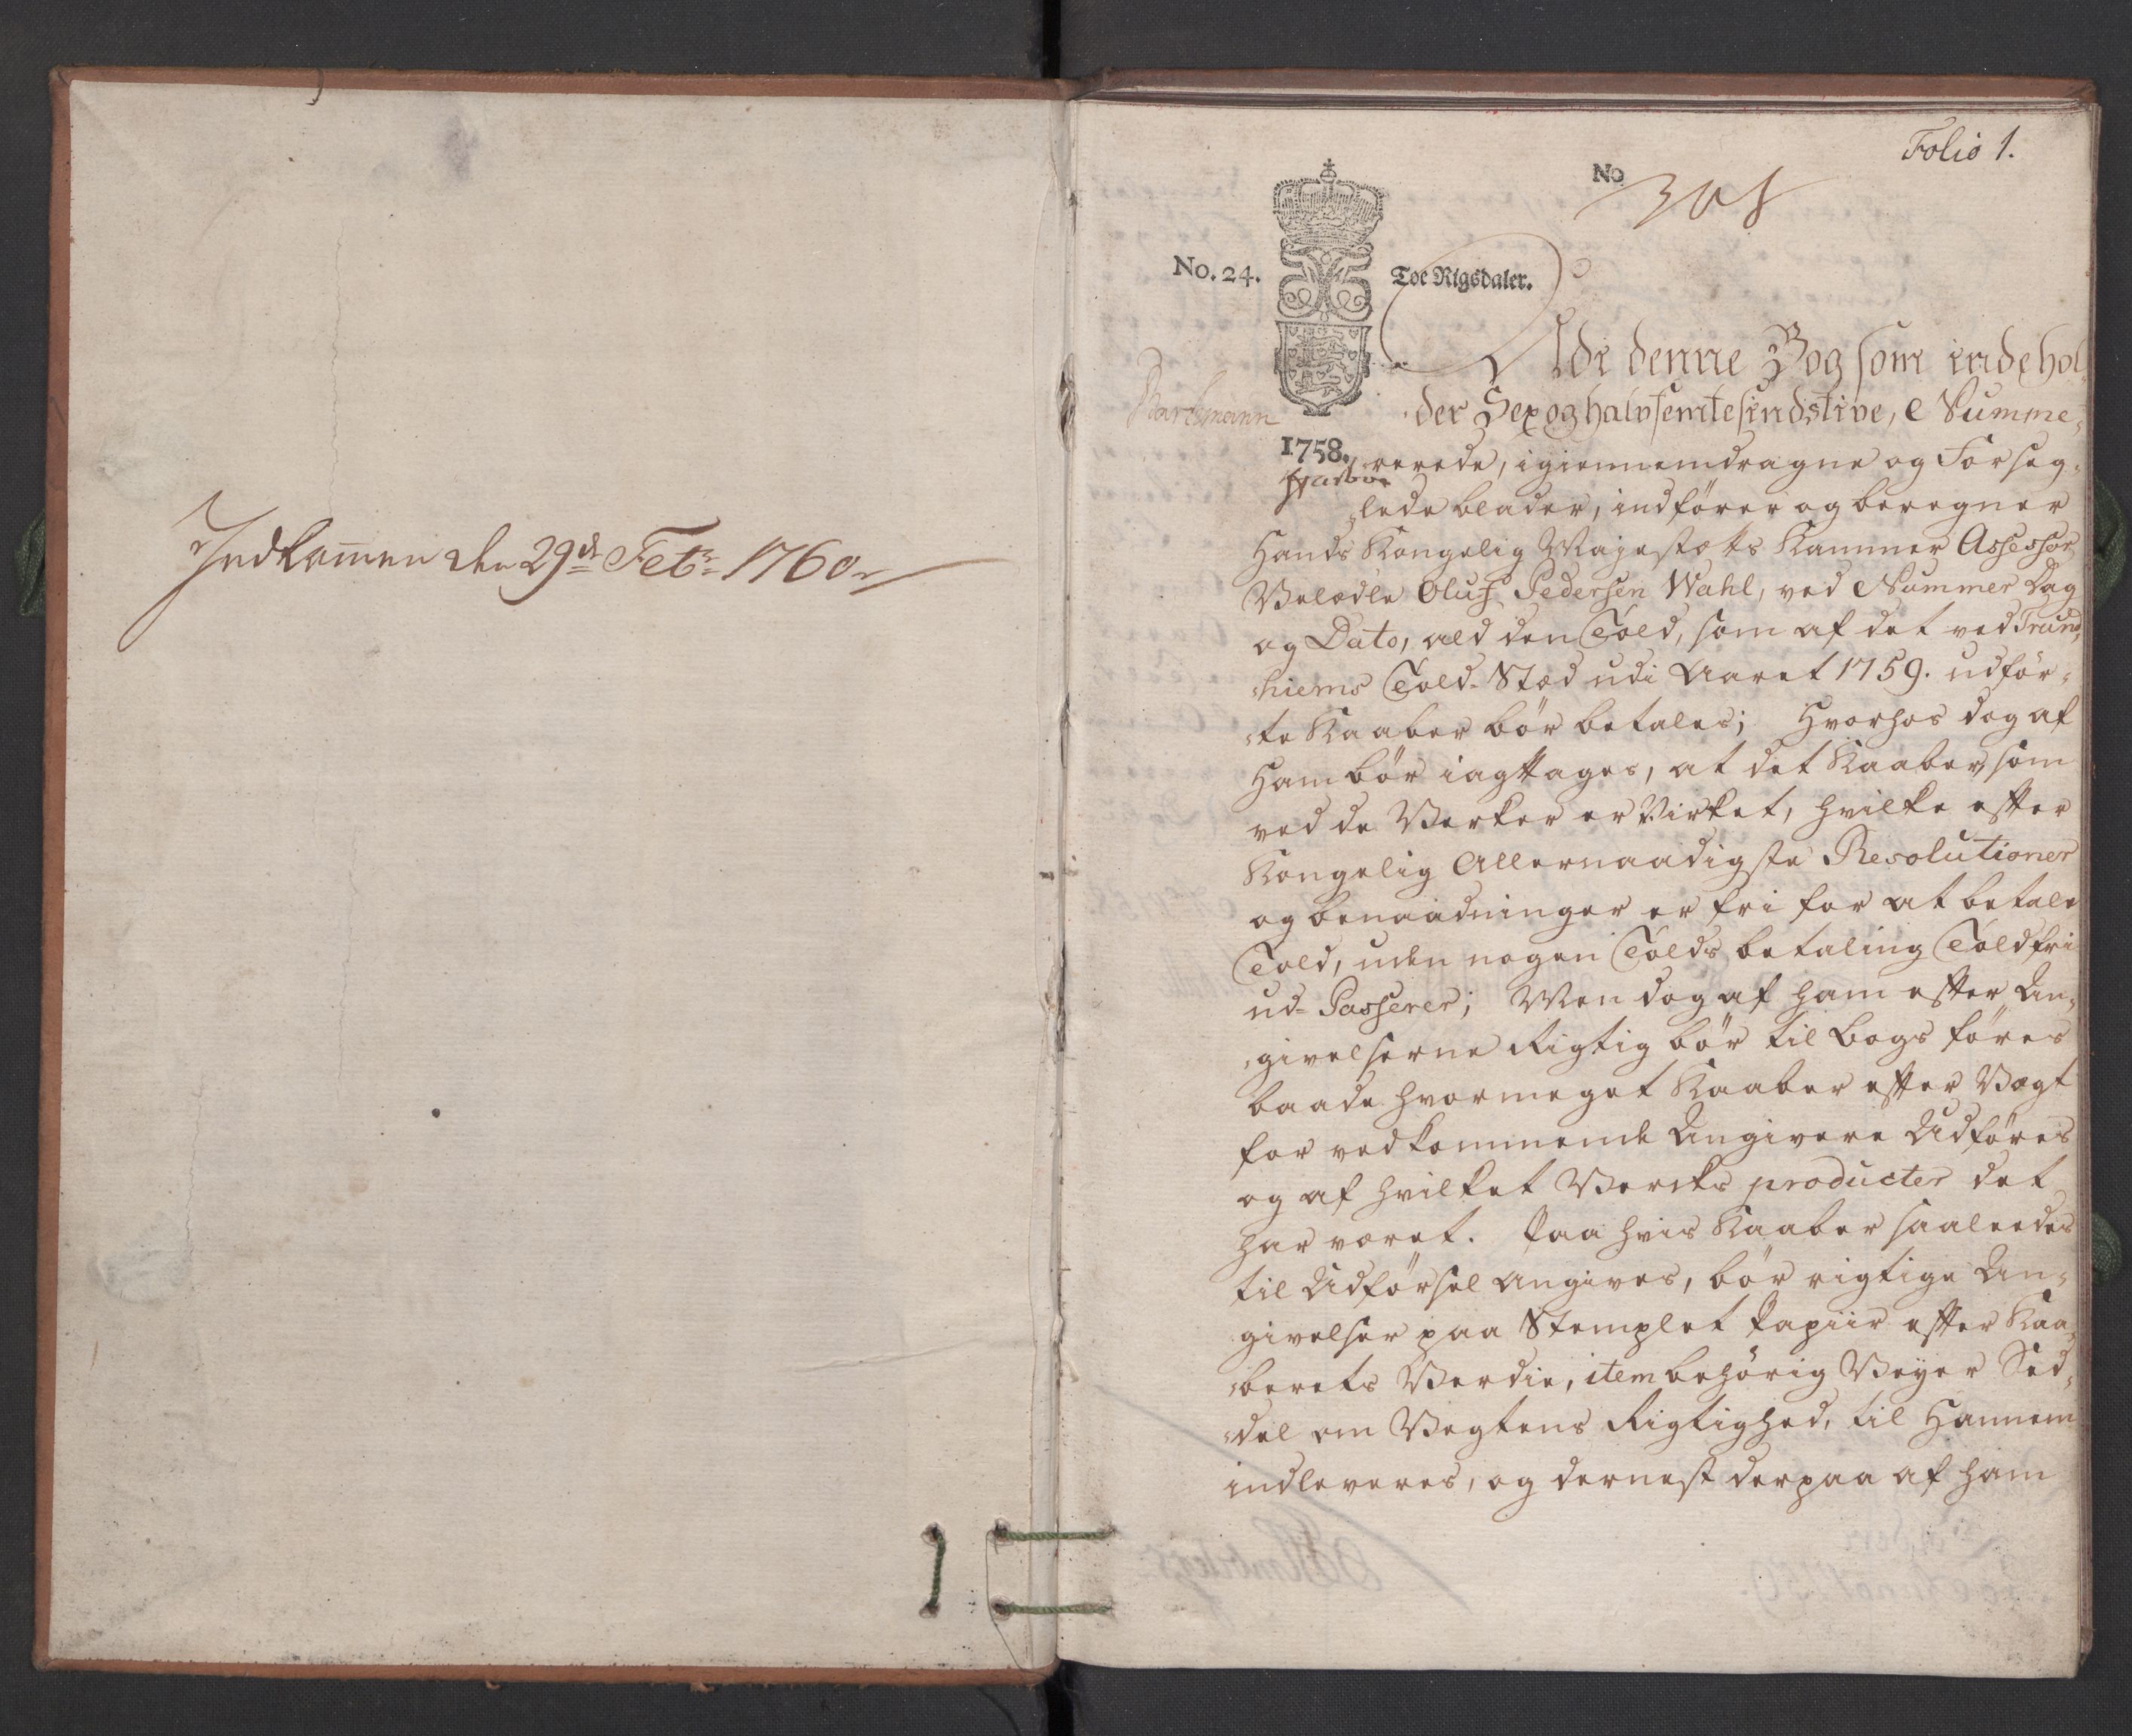 Indkommen den 29de Febr: 1760
Folio 1.
No
308
No. 24.
Toe Rigsdaler.
Udi denne Bog som indehol-
Barthmann
der Sex og halvfemtesindstive, Numme,
1758.
rerede, igiennemdragne og Forseg-
lede blader, indfører og beregner
Hands Kongelig Mayestæts Kammer Assessor
Velædle Oluf Pedersen Wahl, ved Nummer Dag
og Dato, ald den Told, som af det ved Trund,
hiems Told-Stæd udi Aaret 1759. udfør-
te Kaaber bør betales; Hvorhos dog af
Ham bør iagttages, at det Kaaber, som
ved de Verker er Virket, hvilke efter
Kongelig Allernaadigste Resolutioner
og benaadninger er fri for at betale
Told, uden nogen Tolds betaling Toldfri
ud-Passerer; Men dog af ham efter An,
givelserne Rigtig bør til Bogs føres
baade hvormeget Kaaber efter Vægt
for vedkommende Angivere Udføres
og af hvilket Vercks producter det
har været. Paa hvis Kaaber saaleedes
til Udførsel angives, bør rigtige An,
givelser paa Stemplet Papiir efter Kaa,
berets Verdie, item behørig Veyer Sed,
del om Vegtens Rigtighed, til Hannem
indleveres, og dernest derpaa af ham